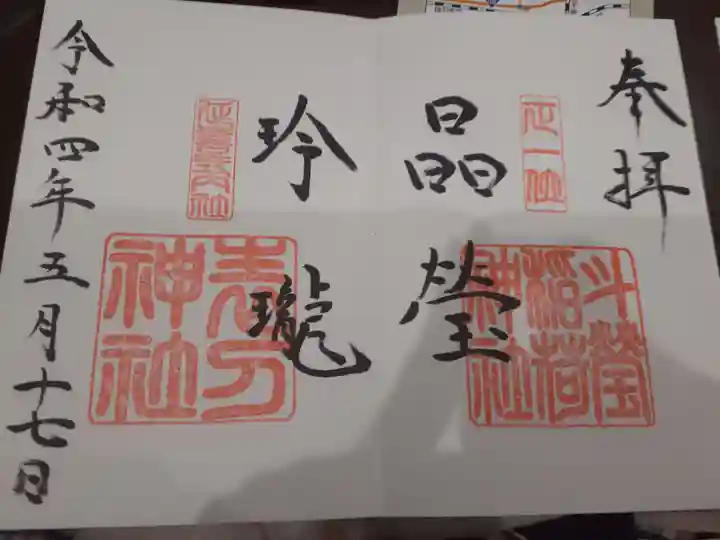 奉拝
正一位
斗瑩
稲荷
神社
晶瑩
玲瓏
志力
神社
令和四年五月十七日